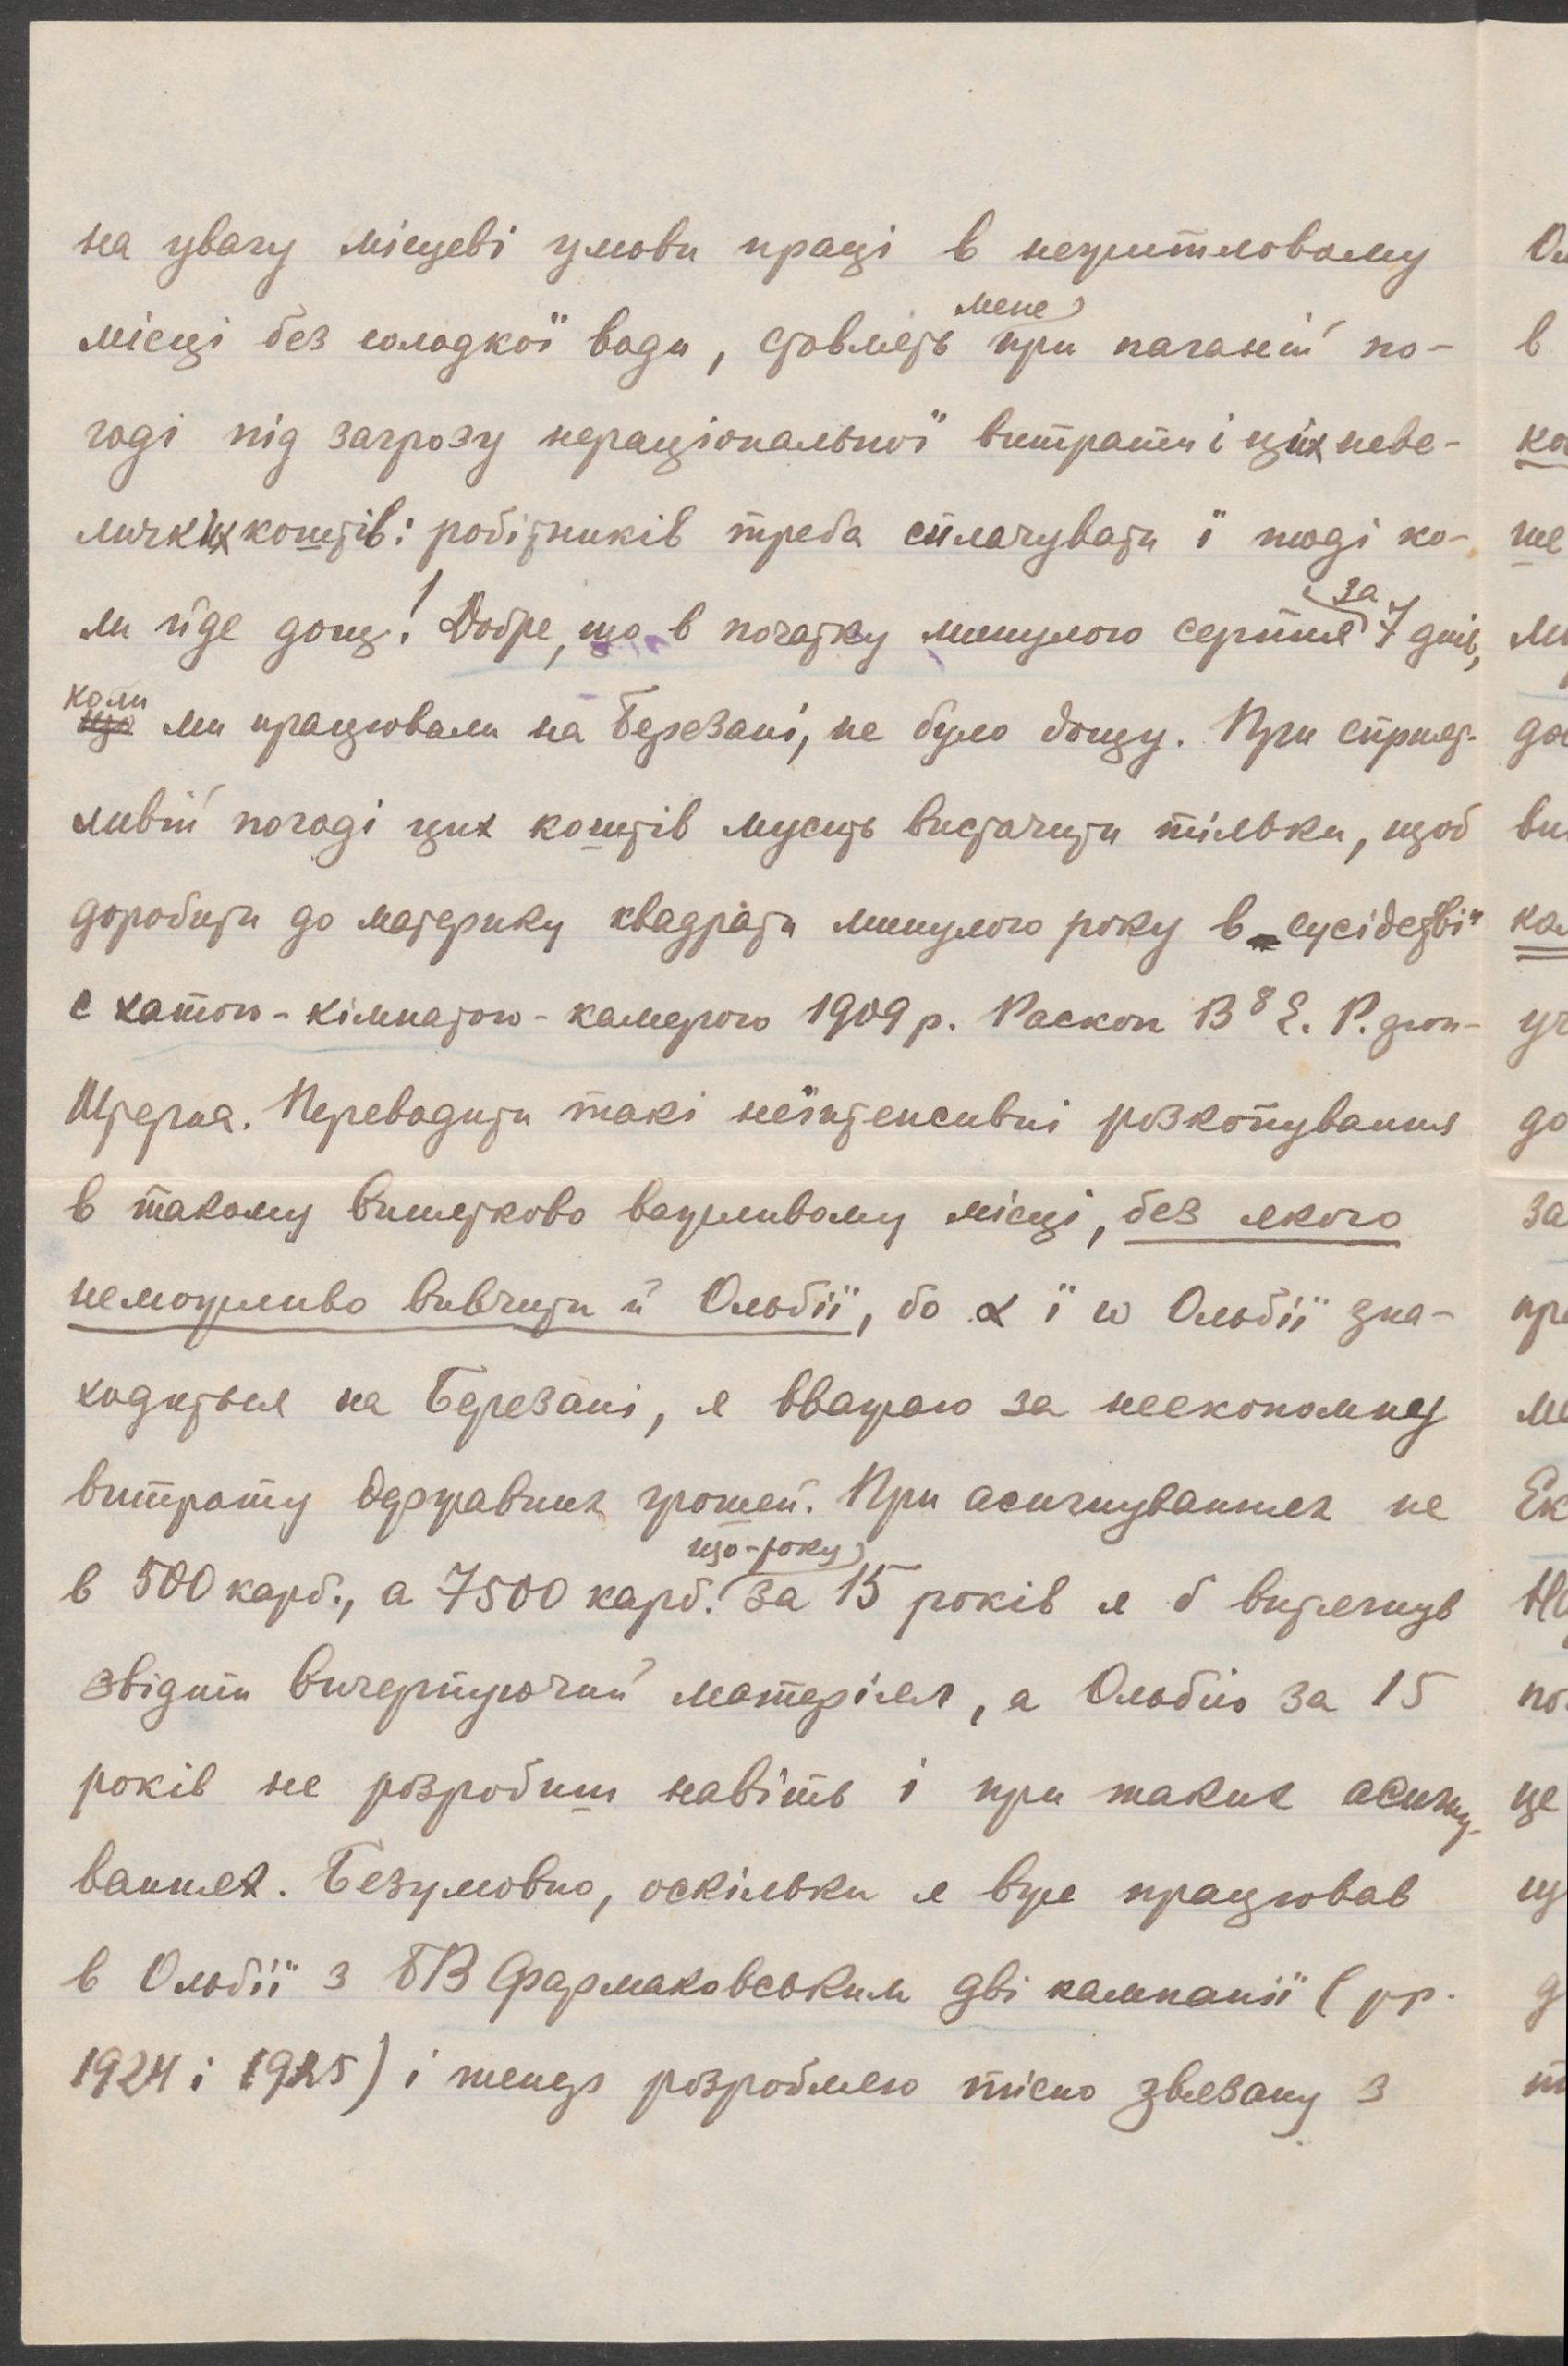 на увагу місцеві умови праці в нежитловому
місці без солодкої води, ставлять мене при поганій по-
годі під загрозу нераціональної витрати і цих неве-
личких коштів: робітників треба сплачувати ї тоді ко-
ли йде дощ! Добре, що в початку минулого серпня за 7 днів,
коли ми працювали на Березані, не було дощу. При сприят-
ливій погоді цих коштів мусить вистачити тільки, щоб
доробити до материку квадрати минулого року в сусідстві
с хатою-кімнатою-камерою 1909 р. Раскоп В⁸ Е. Р. фон-
Штерна. Переводити такі неїнтенсивні розкопування
в такому вынятково важливому місці, без якого
неможливо вивчити й Ольбії, бо α ї ω Ольбії зна-
ходиться на Березані, я вважаю за неекономну
витрату державних грошей. При асигнуваннях не
в 500 карб., а 7500 карб. що-року за 15 років я б витягнув
звідти вичерпуючий матеріял, а Ольбію за 15
років не розробиш навіть і при таких асигну-
ваннях. Безумовно, оскільки я вже працював
в Ольбії з БВ Фармаковським дві кампанії (рр.
1924 і 1925) і тепер розробляю тісно звязану з